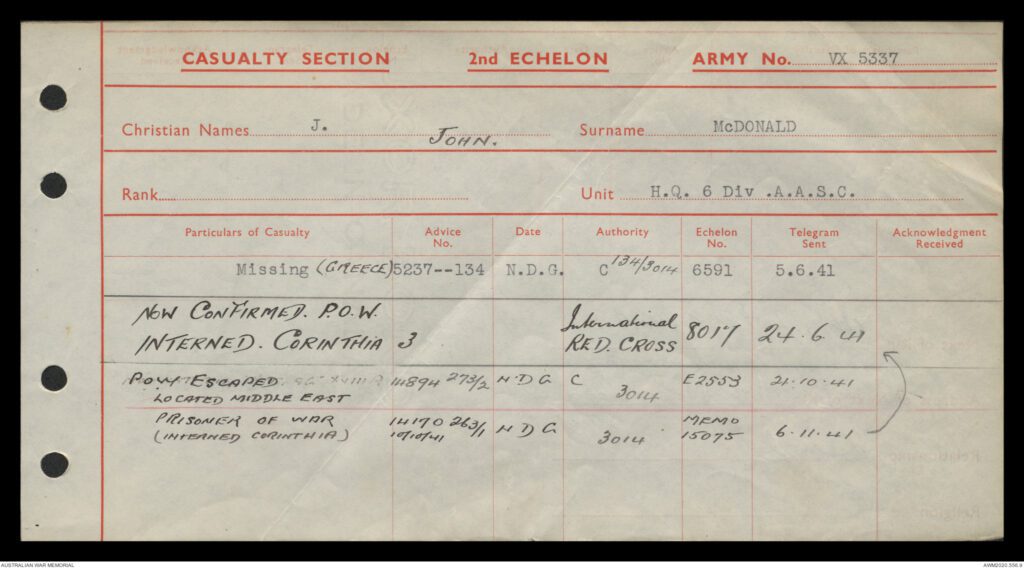 CASUALTY SECTION 2nd ECHELON ARMY No. VX 5337
Christian Names J. JOHN. Surname McDONALD
Rank Unit H.Q. 6 Div .A.A.S.C.
Particulars of Casualty Advice No. Date Authority Echelon No. Telegram Sent Acknowledgment Received
Missing (GREECE) 5237--134 N.D.G. C 134/3014 6591 5.6.41
NOW CONFIRMED. P.O.W. International
INTERNED. CORINTHIA 3 RED. CROSS 8017 24.6.41
ESCAPED 14894 273/2 N.D.G C 3014 E2553 21.10.41
LOCATED MIDDLE EAST
PRISONER OF WAR 14170 263/1 N D G 3014 MEMO 15075 6.11.41
(INTERNED CORINTHIA) 10/10/41
AUSTRALIAN WAR MEMORIAL AWM2020.556.9